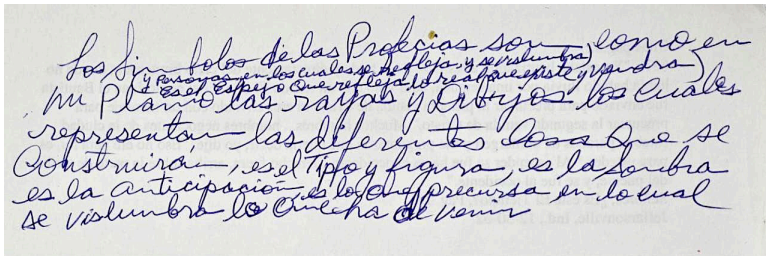 Los Simbolos de las Profecias son, como en
y Personas, en los cuales se refleja, y se vislumbra)
Es el Espejo que refleja lo real que existe y vendra)
un Plano las rayas y Dibujos los cuales
representan las diferentes cosa que se
Construirá, es el Tipo y figura, es la sombra
es la anticipación, es lo que precursa en lo cual
se vislumbra lo que ha de venir